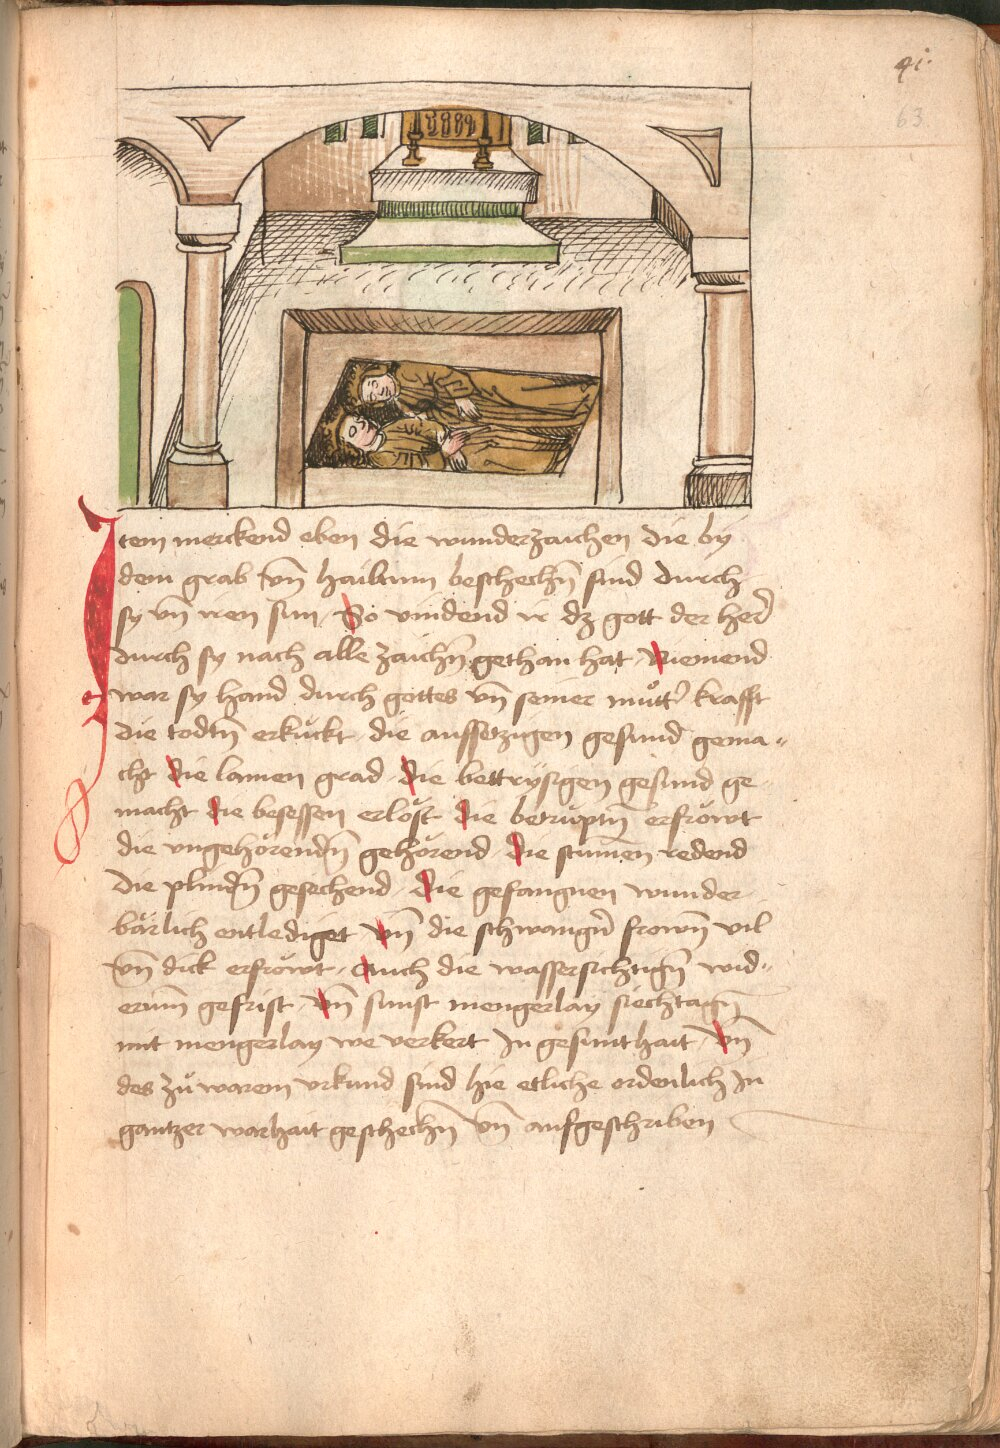 91.
63
Item merckend eben die wunderzaichen die by
dem grab vn̄ hailtum beschechn̄ sind durch
sy vn̄ iren sun So vindend ir dz gott der herr
durch sy nach alle zaichn̄ gethan hat Niemend
war sy hand durch gottes vn̄ seiner mutt' krafft
die todtn̄ erkückt die aussetzigen gesund gema„
cht die lamen grad die bettrysigen gesund ge„
macht die besessen erlöst die betruptn̄ erfröwt
die vngehörendn̄ gehörend die stumen redend
die plindn̄ gesechend die gefangnen wunder„
bärlich entlediget vn̄ die schwangn̄ frown̄ vil
vn̄ dick erfröwt Auch die wassersichtign̄ wid„
erum̄ gefrist vn̄ sunst mengerlay siechtagn̄
mit mengerlay we verkert In gesunthait vn̄
des zů warem vrkund sind hie etliche ordenlich In
gantzer warhait geschechn̄ vn̄ aufgeschriben